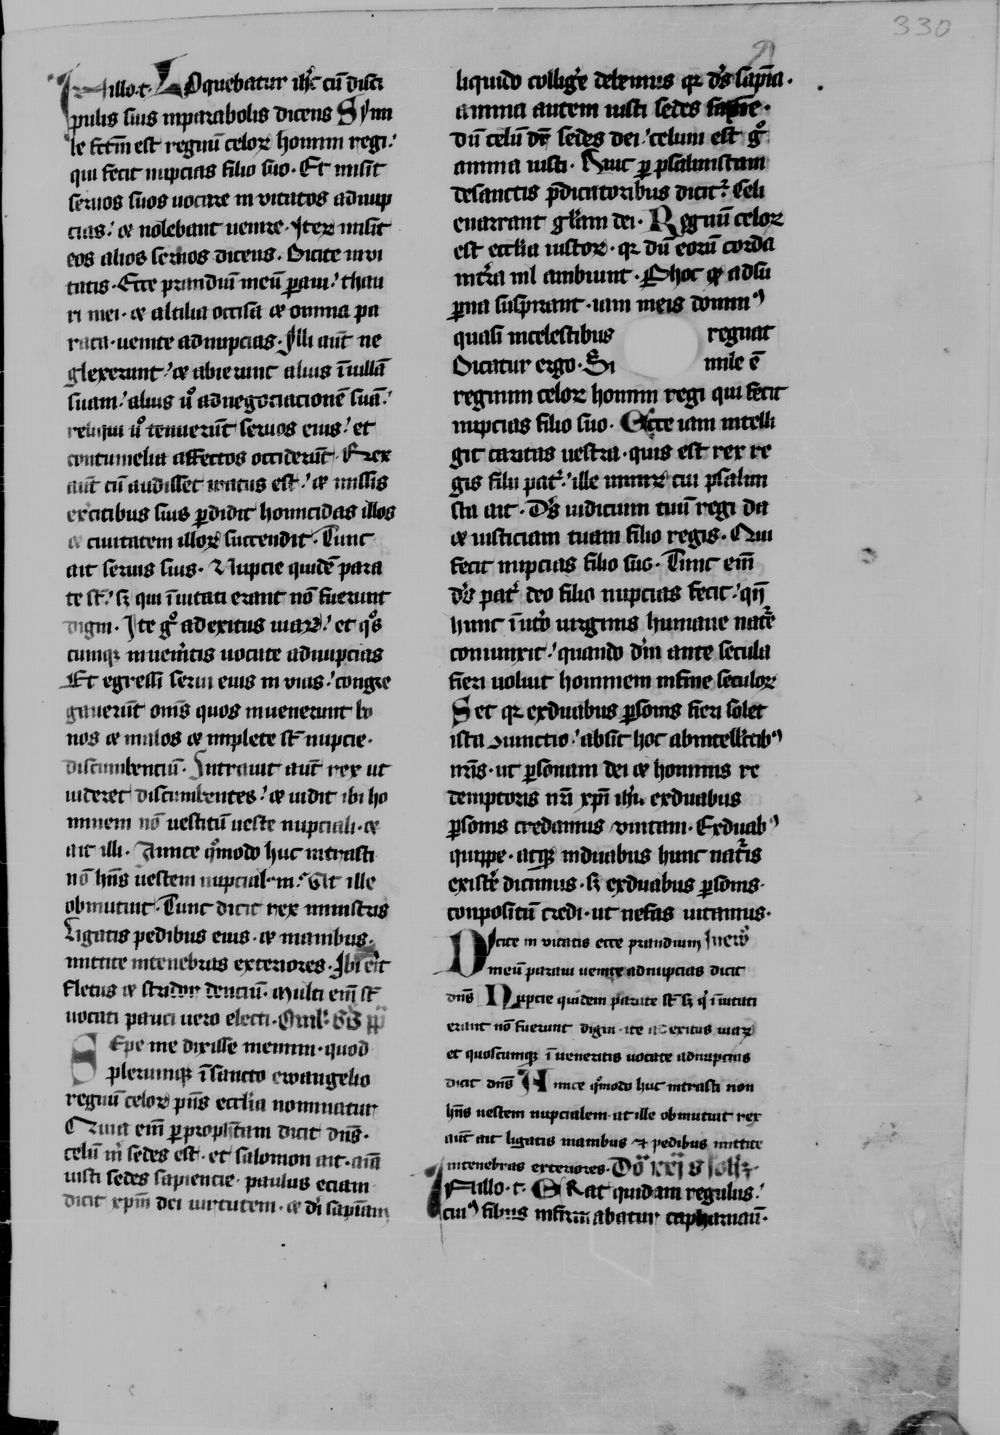 330
In illo.t. Loquebatur ih̄c cū disci
pulis suis inparabolis dicens Simi
le factū est regnū celoꝝ homini regi.
qui fecit nupcias filio suo. Et misit
seruos suos uocare in uitatos adnup
cias. ⁊ nolebant uenire. Iteꝝ misit
eos alios seruos dicens. Dicite inui
tatis. Ecce prandiū meū paui. thau
ri mei. ⁊ altilia occisa ⁊ omnia pa
rata. uenite adnupcias. Illi aut̄ ne
glexerunt. ⁊ abierunt alius īuillā
suam. alius u͛o adnegociacionē suā.
reliqui u͛o tenuerūt seruos eius. et
contumelia affectos occiderūt. Rex
aut̄ cū audisset iratus est. ⁊ missis
exercitibus suis ꝑdidit homicidas illos
⁊ ciuitatem illoꝝ succendit. Tunc
ait seruis suis. Nupcie quidē para
te st̄. sꝫ qui īuitati erant nō fuerunt
digni. Ite g͛o adexitus uiaꝝ. et q͛os
cumqꝫ inueneritis uocate adnupcias
Et egressi serui eius in uias. congre
gauerūt omēs quos inuenerunt bo
nos ⁊ malos ⁊ implete st̄ nupcie.
discumbenciū. Intrauit aut̄ rex ut
uideret discumbentes. ⁊ uidit ibi ho
minem nō uestitū ueste nupciali. ⁊
ait illi. Amice q͛modo huc intrasti
nō hn̄s uestem nupcialem. At ille
obmutuit. Tunc dicit rex ministris
Ligatis pedibus eius. ⁊ manibus.
mittite intenebras exteriores. Ibi erit
fletus ⁊ stridor denciū. Multi em̄ st̄
uocati pauci uero electi.
Sepe me dixisse memini. quod
plerumqꝫ īsancto ewangelio
regnū celoꝝ pn̄s ecclia nominatur
Quia em̄ ꝑprophetam dicit dn̄s.
celū m͛ sedes est. et salomon ait. aīa
iusti sedes sapiencie. paulus eciam
dicit xp̄m dei uirtutem. ⁊ d͛i sapīam
liquido collige͛ debemus qꝛ d͛s sapīa.
anima autem iusti sedes sapīe.
dū celū dr̄ sedes dei. celum est g͛o
anima iusti. Hinc ꝑ psalmistam
desanctis p̄dicatoribus dicit͛. Celi
enarrant gl͛iam dei. Regnū celoꝝ
est ecclīa iustoꝝ. qꝛ dū eorū corda
int͛ra nl̄ ambiunt. Ꝑhoc qꝫ adsu
ꝑna suspirant. iam ineis dominꝰ
quasi incelestibus regnat
Dicatur ergo. Si mile ē
regnum celoꝝ homini regi qui fecit
nupcias filio suo. Ecce iam intelli
git caritas uestra. quis est rex re
gis filii pat͛. ille nimiꝝ cui psalmi
sta ait. D͛s iudicium tuū regi da
⁊ iusticiam tuam filio regis. Qui
fecit nupcias filio suo. Tunc em̄
d͛s pat͛ deo filio nupcias fecit. qn̄
hunc īut͛o uirginis humane nat͛e
coniunxit. quando d͛m ante secula
fieri uoluit hominem infine seculoꝝ
Set qꝛ exduabus ꝑsonis fieri solet
ista iunctio. absit hoc abintellectibꝰ
nr̄is. ut ꝑsonam dei ⁊ hominis re
demptoris nr̄i xp̄i ih̄u exduabus
ꝑsonis credamus unitam. Exduabꝰ
quippe. atqꝫ induabus hunc nat͛is
existe͛ dicimus. sꝫ exduabus ꝑsonis.
conpositū credi. ut nefas uitamus.
Dicite in uitatis ecce prandium
meū paraui uenite adnupcias dicit
dn̄s Nupcie quidem parate st̄ sꝫ q͛ īuitati
erant nō fuerunt digni. ite ad exitus uiaꝝ
et quoscumqꝫ īueneritis uocate adnupcias
dicit dn̄s Amice q͛modo huc intrasti non
hn̄s uestem nupcialem. at ille obmutuit rex
aut̄ ait ligatis manibus ⁊ pedibus mittite
intenebras exteriores.
In illo.t. Erat quidam regulus.
cuiꝰ filius infirmabatur capharnaū.